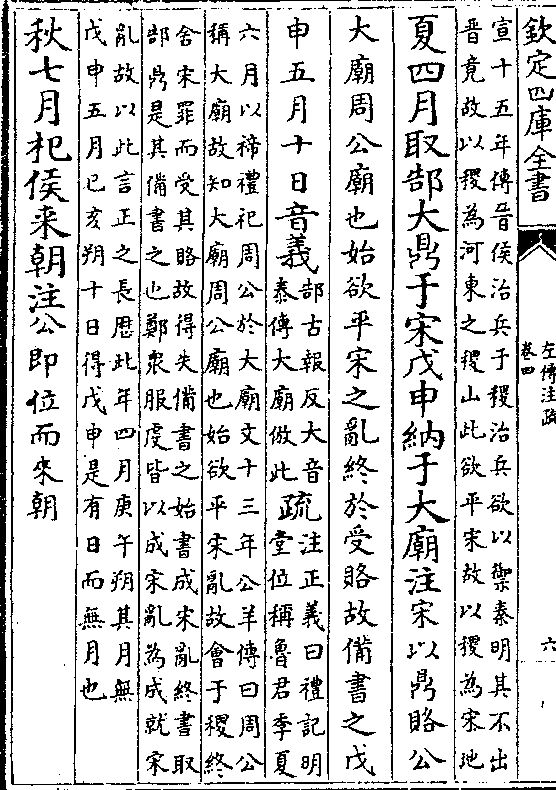 欽定四庫全書
左傳注疏
卷四
六
宣十五年傳晉侯治兵于稷治兵欲以禦秦明其不出
晉竟故以稷為河東之稷山此欲平宋故以稷為宋地
夏四月取郜大鼎于宋戊申納于大廟注宋以鼎賂公
大廟周公廟也始欲平宋之亂終於受賂故備書之戊
申五月十日音義
郜古報反大音
泰傳大廟倣此
疏
注正義曰禮記明
堂位稱魯君季夏
六月以禘禮祀周公於大廟文十三年公羊傳曰周公
稱大廟故知大廟周公廟也始欲平宋亂故會于稷終
舍宋罪而受其賂故得失備書之始書成宋亂終書取
郜鼎是其備書之也鄭衆服虔皆以成宋亂為成就宋
亂故以此言正之長歷此年四月庚午朔其月無
戊申五月己亥朔十日得戊申是有日而無月也
秋七月杞侯来朝注公即位而來朝